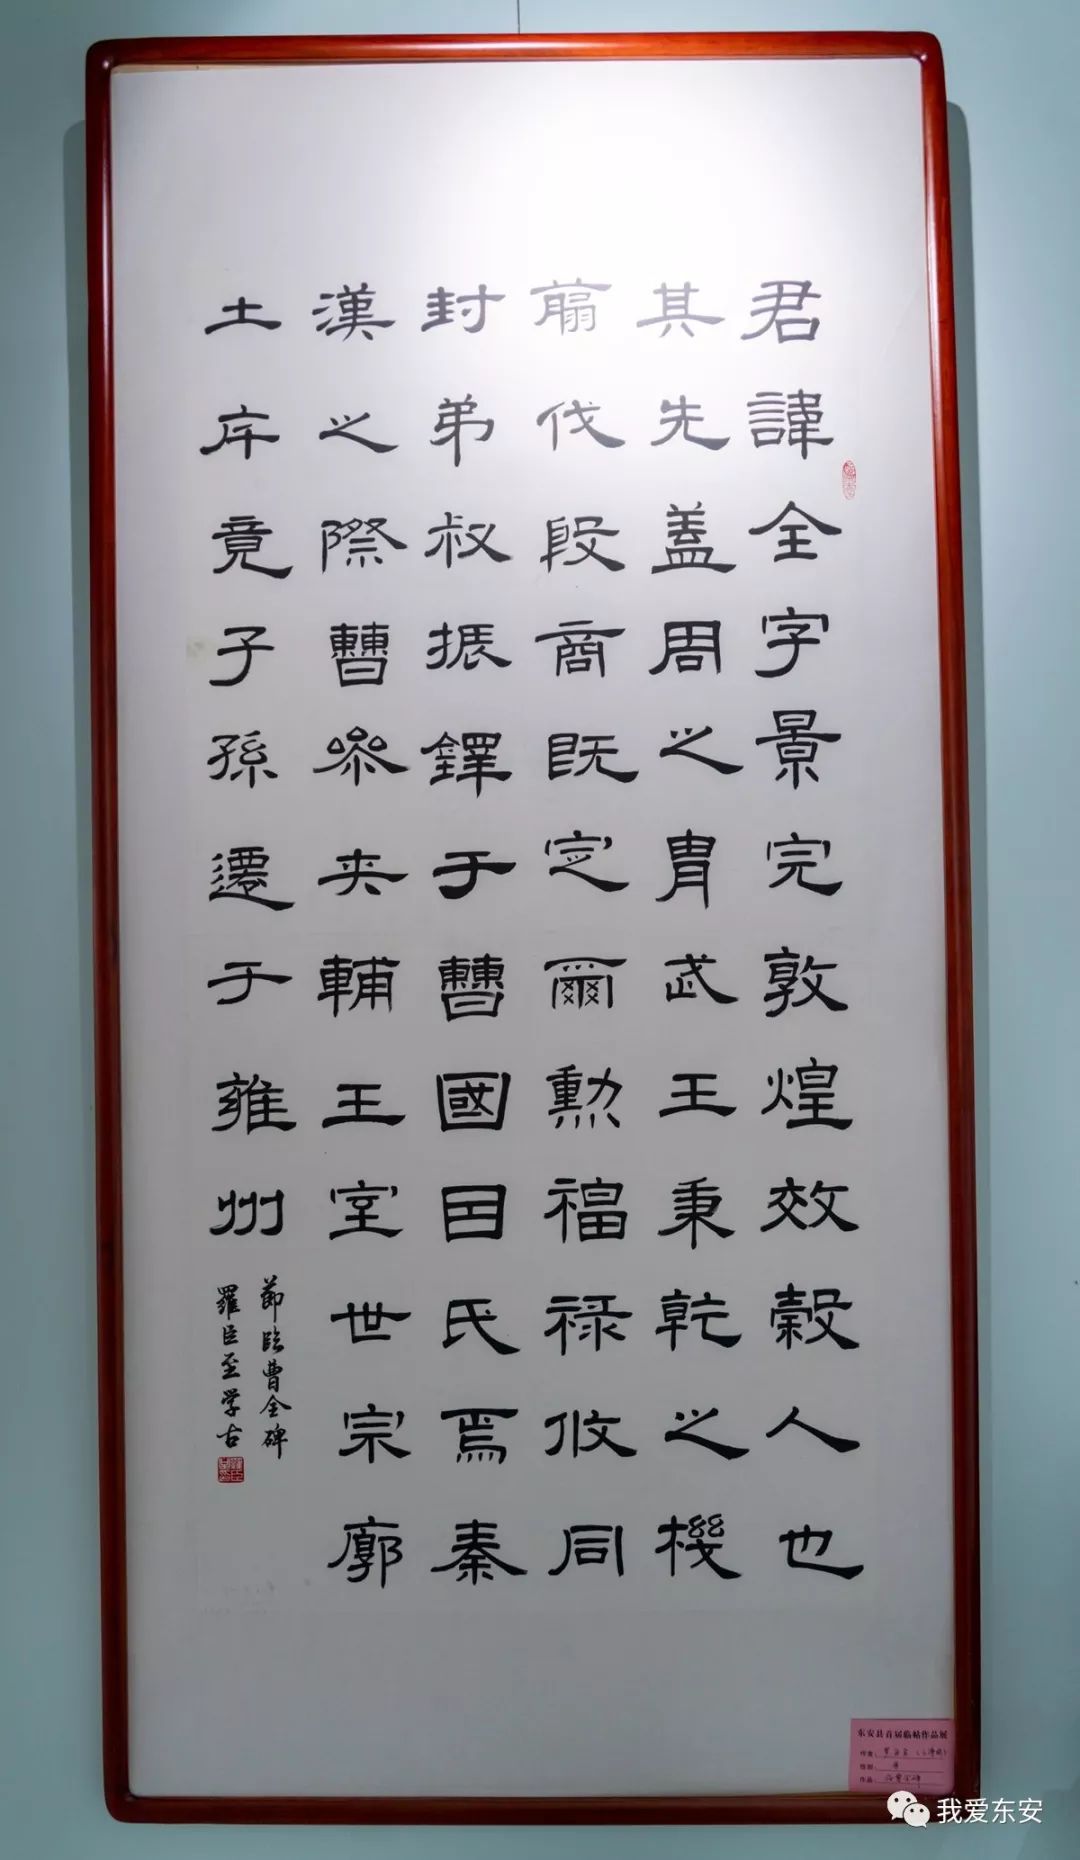 君諱全字景完敦煌效穀人也
其先蓋周之胄武王秉乾之機
翦伐殷商既定爾勲福禄攸同
封弟叔振鐸于曹國因氏焉秦
漢之際曹参夹輔王室世宗廓
土斥竟子孫遷于雍州
節臨曹全碑
羅臣至学古
东安县首届临帖作品展
作者：
性别：男
作品：临曹全碑
我爱东安